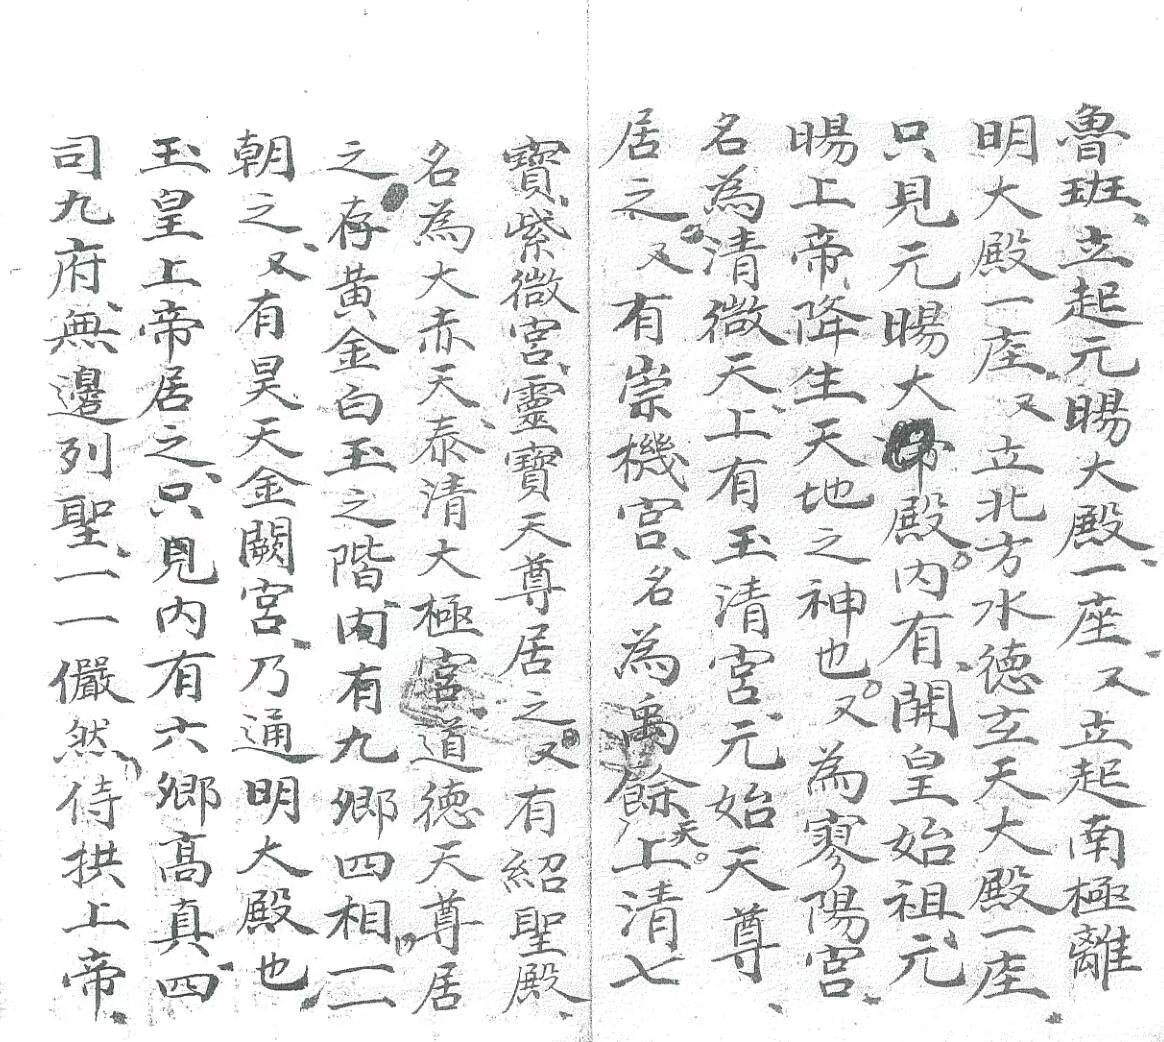 魯班、立起元暘大殿、一座、又立起南極離
明大殿一座、又立北方水德玄天大殿一座、
只見元暘大帝殿。内有、開皇始祖、元
暘上帝、降生天地之神也。又為寥陽宮、
名為清微天、上有玉清宮、元始天尊、
居之。又有崇機宮、名為禹餘天。上清七
寶、紫微宮、靈寶天尊居之、又有紹聖殿、
名為大赤天、泰清大極宮、道德天尊居
之、存黄金白玉之階、内有九卿四相、一一
朝之、又有昊天金闕宮、乃通明大殿也、
玉皇上帝居之、只見内有六卿高真、四
司九府、無邊列聖、一一儼然、侍拱上帝、